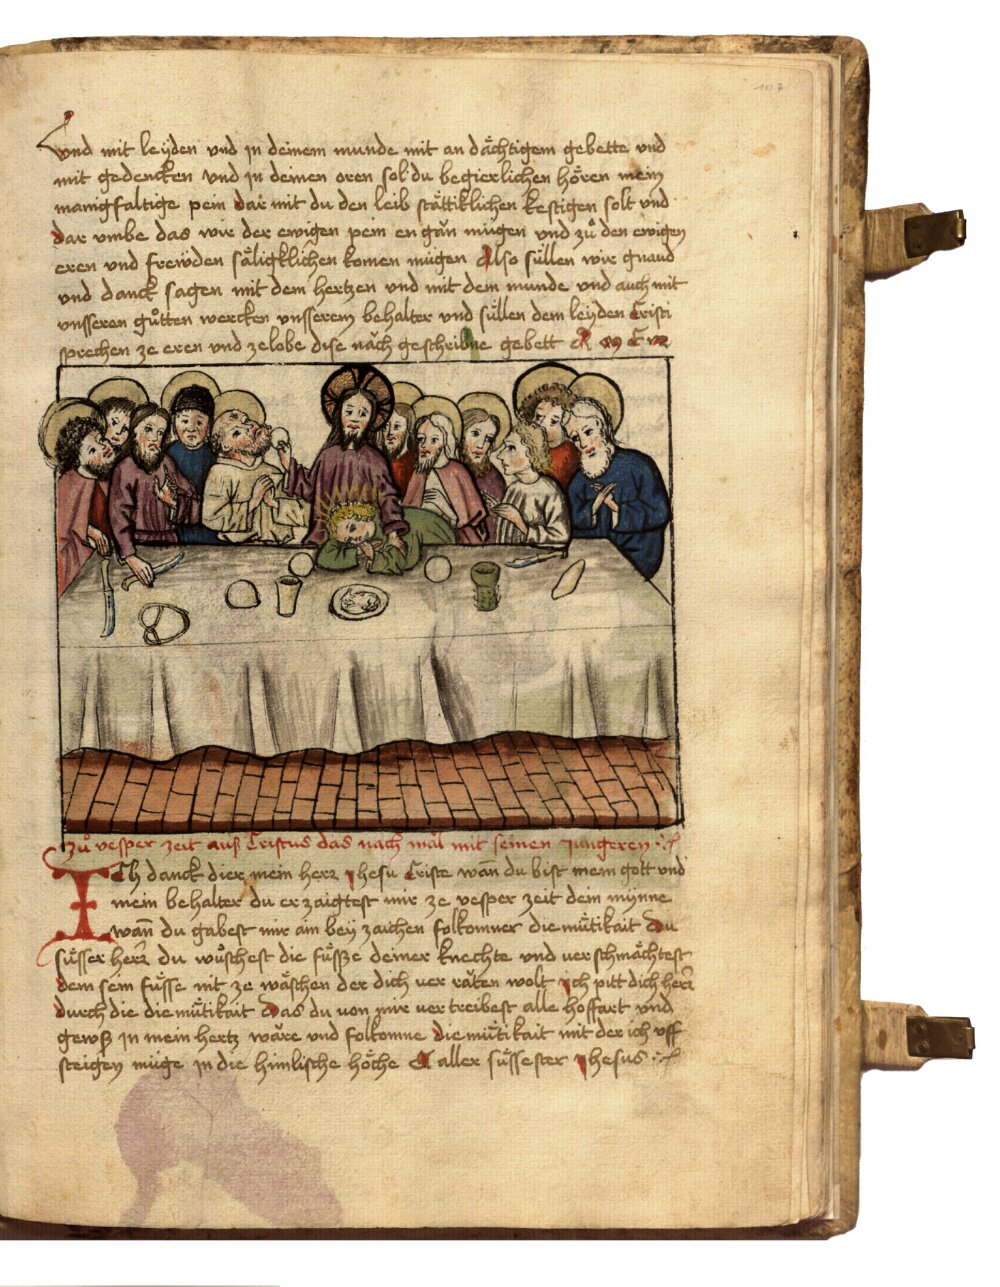 107
Vnd mit leyden vnd jn deinem munde mit an dächtigem gebette vnd
mit gedencken vnd jn deinen oren sol du begierlichen hören mein
manigfaltige pein dar mit du den leib stättiklichen kestigen solt vnd
dar vmbe das wir der ewigen pein en gän mügen vnd zů den ewigen
eren vnd frewden säligklichen komen mügen Also süllen wir gnaud
vnd danck sagen mit dem hertzen vnd mit dem munde vnd auch mit
vnsseren gůtten wercken vnsserem behalter vnd süllen dem leyden Cristi
sprechen ze eren vnd ze lobe dise näch geschribne gebett
zů vesper zeit auß Cristus das nach mäl mit seinen jungeren
ICh danck dier mein herr jhesu Criste wan̄ du bist mein gott vnd
mein behalter du er zaigtest mir ze vesper zeit dein mÿnne
wan̄ du gabest mir ain beÿ zaichen folkomner die mütikait Du
süsser herr du wůschest die füsße deiner knechte vnd ver schmächtest
dem sein füsse nit ze wäschen der dich ver räten wolt Ich pitt dich herr
durch die die mütikait Das du von mir ver treibest alle hoffart vnd
gewß jn mein hertz wäre vnd folkomne die mütikait mit der ich vff
steigen müge jn die himlische höche O aller süssester jhesus